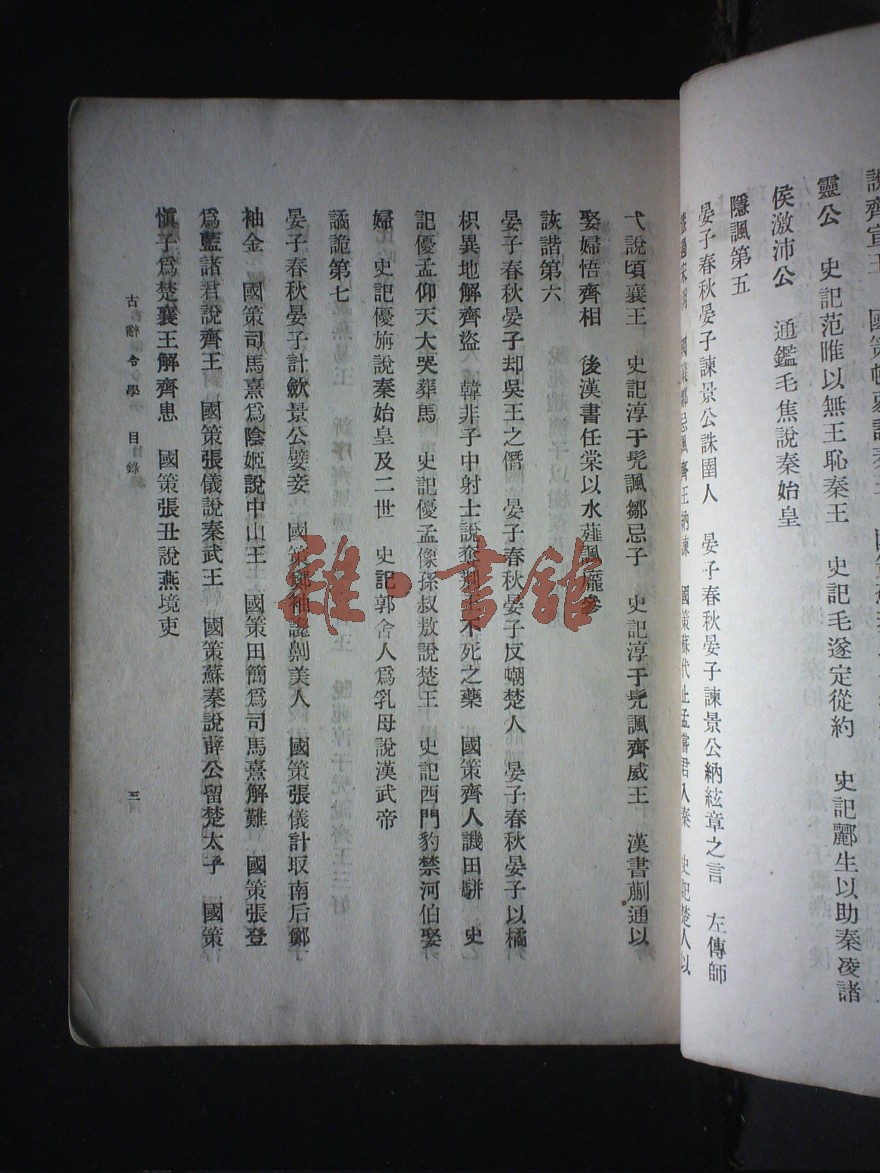 說齊宣王　國策
靈公　史記范睢以無王恥秦王　史記毛遂定從約　史記酈生以助秦凌諸
侯激沛公　通鑑毛焦說秦始皇
隱諷第五
晏子春秋晏子諫景公誅圉人　晏子春秋晏子諫景公納絃章之言　左傳師
國策鄒忌諷齊王納諫　國策蘇代止孟嘗君入秦　史記楚人以
弋說頃襄王　史記淳于髡諷鄒忌子　史記淳于髡諷齊威王　漢書蒯通以
娶婦悟齊相　後漢書任棠以水薤諷龐參
詼諧第六
晏子春秋晏子却吳王之僭　晏子春秋晏子反嘲楚人　晏子春秋晏子以橘
枳異地解齊盜　韓非子中射士說奪荆王不死之藥　國策齊人譏田駢　史
記優孟仰天大哭葬馬　史記優孟像孫叔敖說楚王　史記西門豹禁河伯娶
婦　史記優旃說秦始皇及二世　史記郭舍人爲乳母說漢武帝
譎詭第七
晏子春秋晏子計歛景公嬖妾　國策鄭袖讒劓美人　國策張儀計取南后鄭
袖金　國策司馬熹爲陰姬說中山王　國策田簡爲司馬熹解難　國策張登
爲藍諸君說齊王　國策張儀說秦武王　國策蘇秦說薛公留楚太子　國策
愼子爲楚襄王解齊患　國策張丑說燕境吏
古辭令學　目錄
三
雜·書館